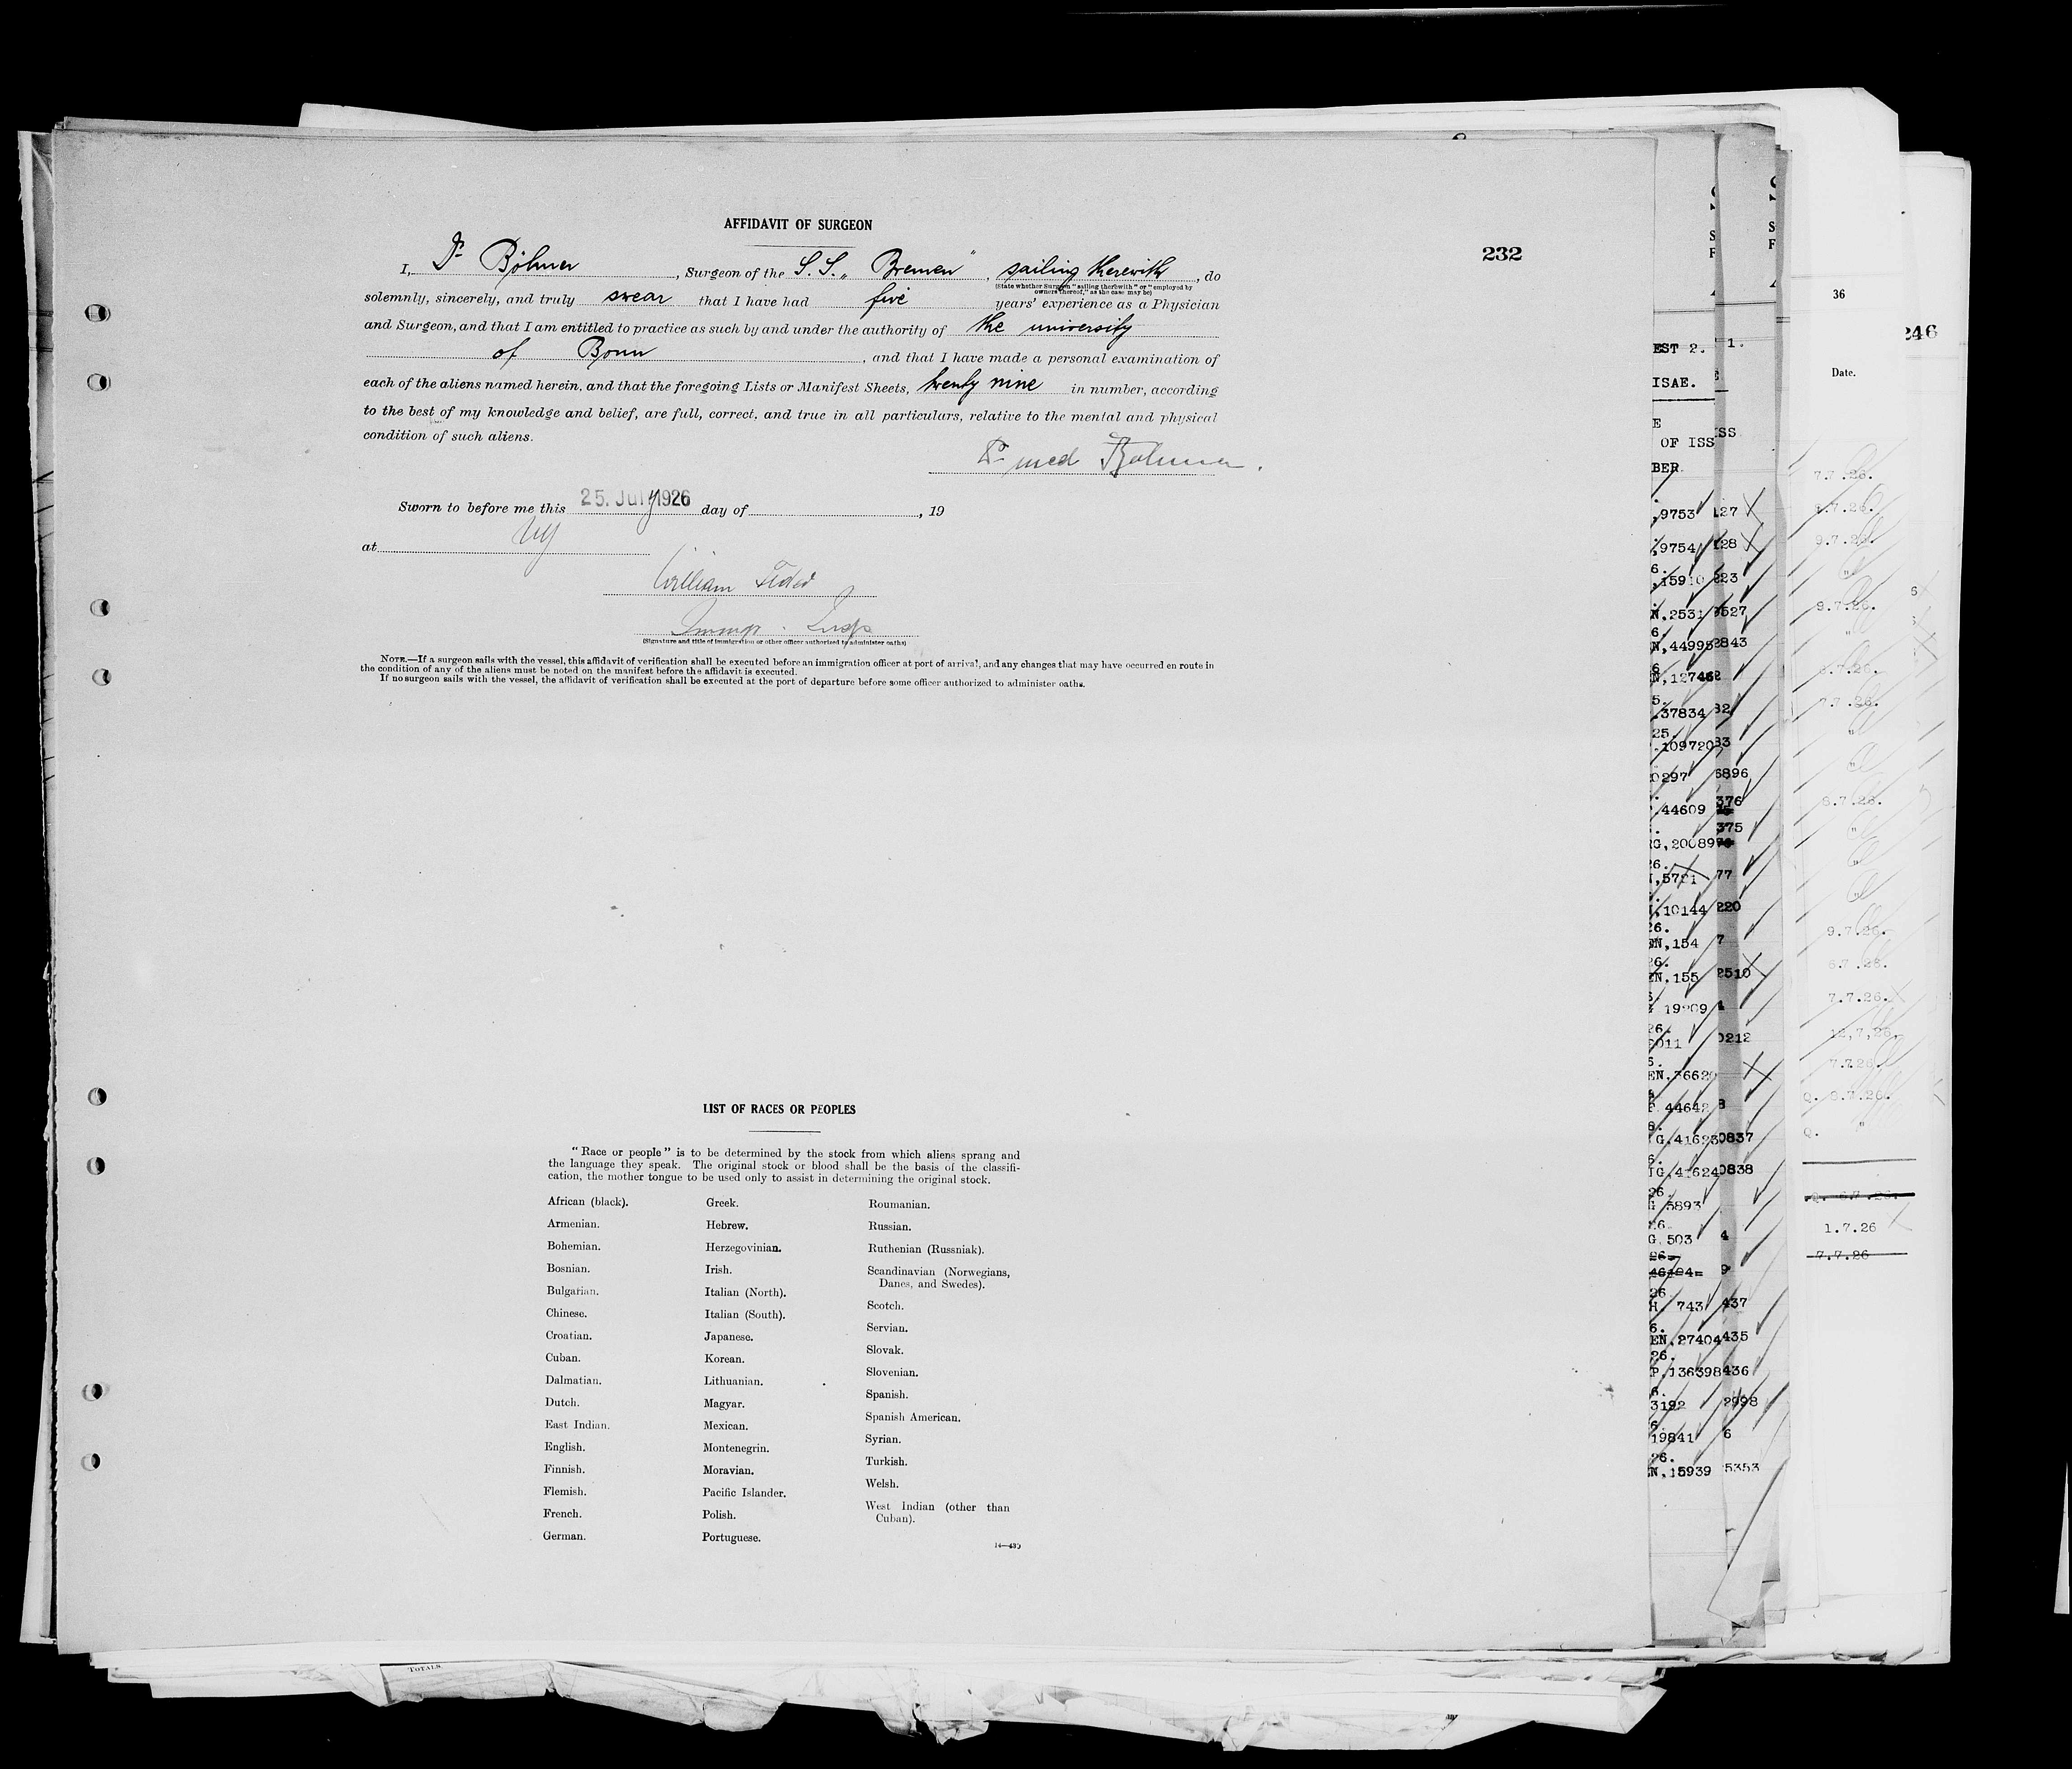 AFFIDAVIT OF SURGEON
232
I, Dr Böhmer, Surgeon of the S.S. „Bremen", sailing therewith, do
(State whether Surgeon "sailing therewith" or "employed by
owners thereof," as the case may be)
solemnly, sincerely, and truly swear that I have had five years' experience as a Physician
and Surgeon, and that I am entitled to practice as such by and under the authority of the university
of Bonn, and that I have made a personal examination of
each of the aliens named herein, and that the foregoing Lists or Manifest Sheets, twenty nine in number, according
to the best of my knowledge and belief, are full, correct, and true in all particulars, relative to the mental and physical
condition of such aliens.
Dr med Böhmer.
Sworn to before me this 25. July 1926 day of , 19
at NY
William
Immgr. Insp
(Signature and title of immigration or other officer authorized to administer oaths)
NOTE.—If a surgeon sails with the vessel, this affidavit of verification shall be executed before an immigration officer at port of arrival, and any changes that may have occurred en route in
the condition of any of the aliens must be noted on the manifest before the affidavit is executed.
If no surgeon sails with the vessel, the affidavit of verification shall be executed at the port of departure before some officer authorized to administer oaths.
LIST OF RACES OR PEOPLES
"Race or people" is to be determined by the stock from which aliens sprang and
the language they speak. The original stock or blood shall be the basis of the classifi-
cation, the mother tongue to be used only to assist in determining the original stock.
African (black).
Armenian.
Bohemian.
Bosnian.
Bulgarian.
Chinese.
Croatian.
Cuban.
Dalmatian.
Dutch.
East Indian.
English.
Finnish.
Flemish.
French.
German.
Greek.
Hebrew.
Herzegovinian.
Irish.
Italian (North).
Italian (South).
Japanese.
Korean.
Lithuanian.
Magyar.
Mexican.
Montenegrin.
Moravian.
Pacific Islander.
Polish.
Portuguese.
Roumanian.
Russian.
Ruthenian (Russniak).
Scandinavian (Norwegians,
Danes, and Swedes).
Scotch.
Servian.
Slovak.
Slovenian.
Spanish.
Spanish American.
Syrian.
Turkish.
Welsh.
West Indian (other than
Cuban).
TOTALS
EST 2.
ISAE.
E
OF ISS
BER.
,9753
,9754
,15910
N,2531
N,44995
N,12746
.37834
.109720
0297
.44609
G,20089
,10144
EN,154
EN,155
P 44642
G,41623
G,41624
G 5893
G,503
H, 743
EN,27404
P,136398
3192
19841
N,15939
1.
ISS
127
128
223
2843
6896
376
375
77
220
7
2510
0212
0837
0838
4
9
437
435
436
2998
6
5353
36
246
Date.
7.7.26.
9.7.26.
9.7.26.
7.7.26.
8.7.26.
9.7.26.
6.7.26.
7.7.26.
12,7,26.
7.7.26.
Q. 8.7.26.
Q. "
1.7.26
7.7.26